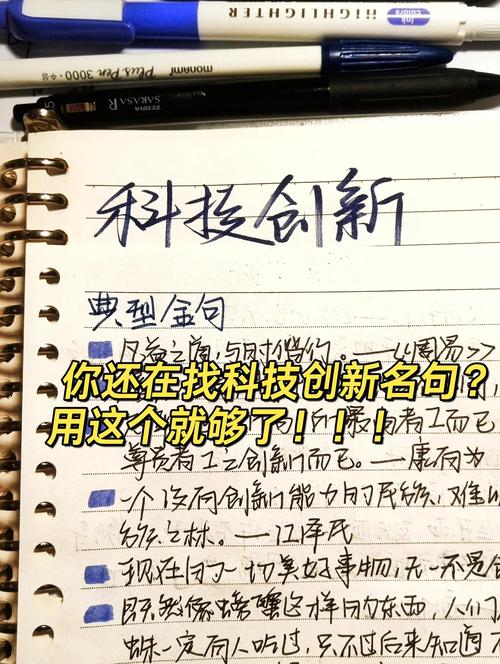 HIGHLIGHTER
Ink colors
monami Plus Pen 3000
ZEBRA SARASA R
科技创新
典型金句
凡益之道,与时偕行。——《周易》
你还在找科技创新名句?
用这个就够了!!!
最高者工而已
尊贵者工之创新而已。——康有为
一个没有创新能力的民族,难以
族之林。——江泽民
现在的一切美好事物,无一不是创
既然像螃蟹这样的东西,人们
蛛一定有人吃过,只不过后来知道